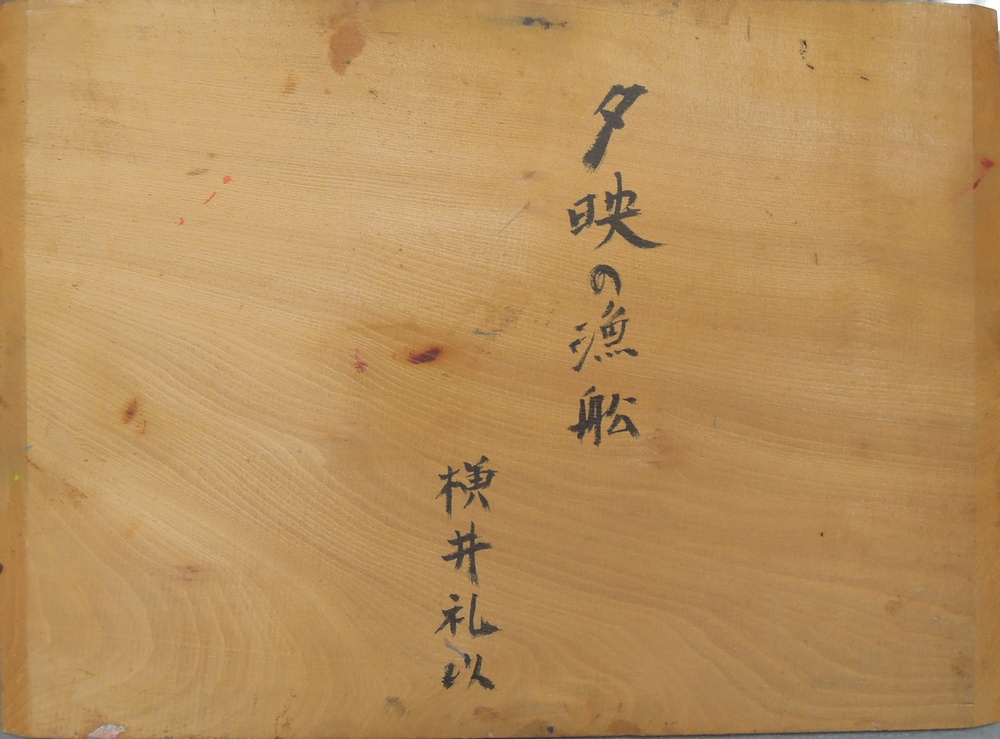 夕映の漁舩
横井礼以